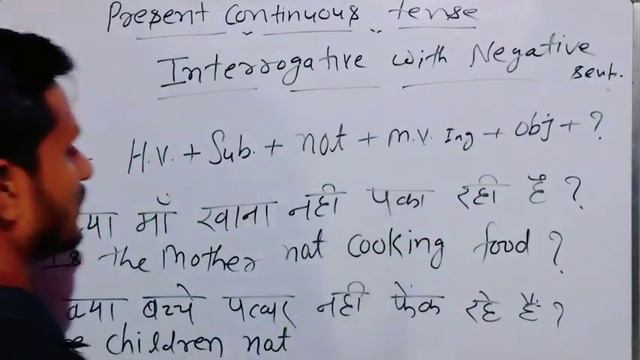 Present Continuous tense
Interrogative with Negative
sent.
H.V. + Sub. + not + M.V. Ing + Obj + ?
क्या माँ खाना नही पका रही है ?
Is the Mother not cooking food ?
क्या बच्चे पत्थर नही फेंक रहे हैं ?
children not